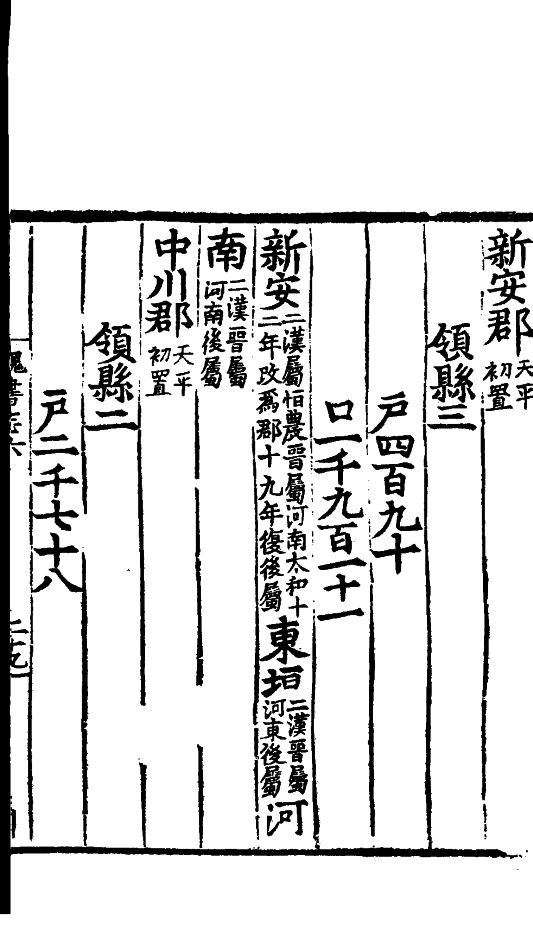 新安郡天平初置
領縣三
戶四百九十
口一千九百一十一
新安二漢屬恒農晉屬河南太和十二年改爲郡十九年復後屬東垣二漢晉屬河東後屬河
南二漢晉屬河南後屬
中川郡天平初置
領縣二
戶二千七十八
魏書志六